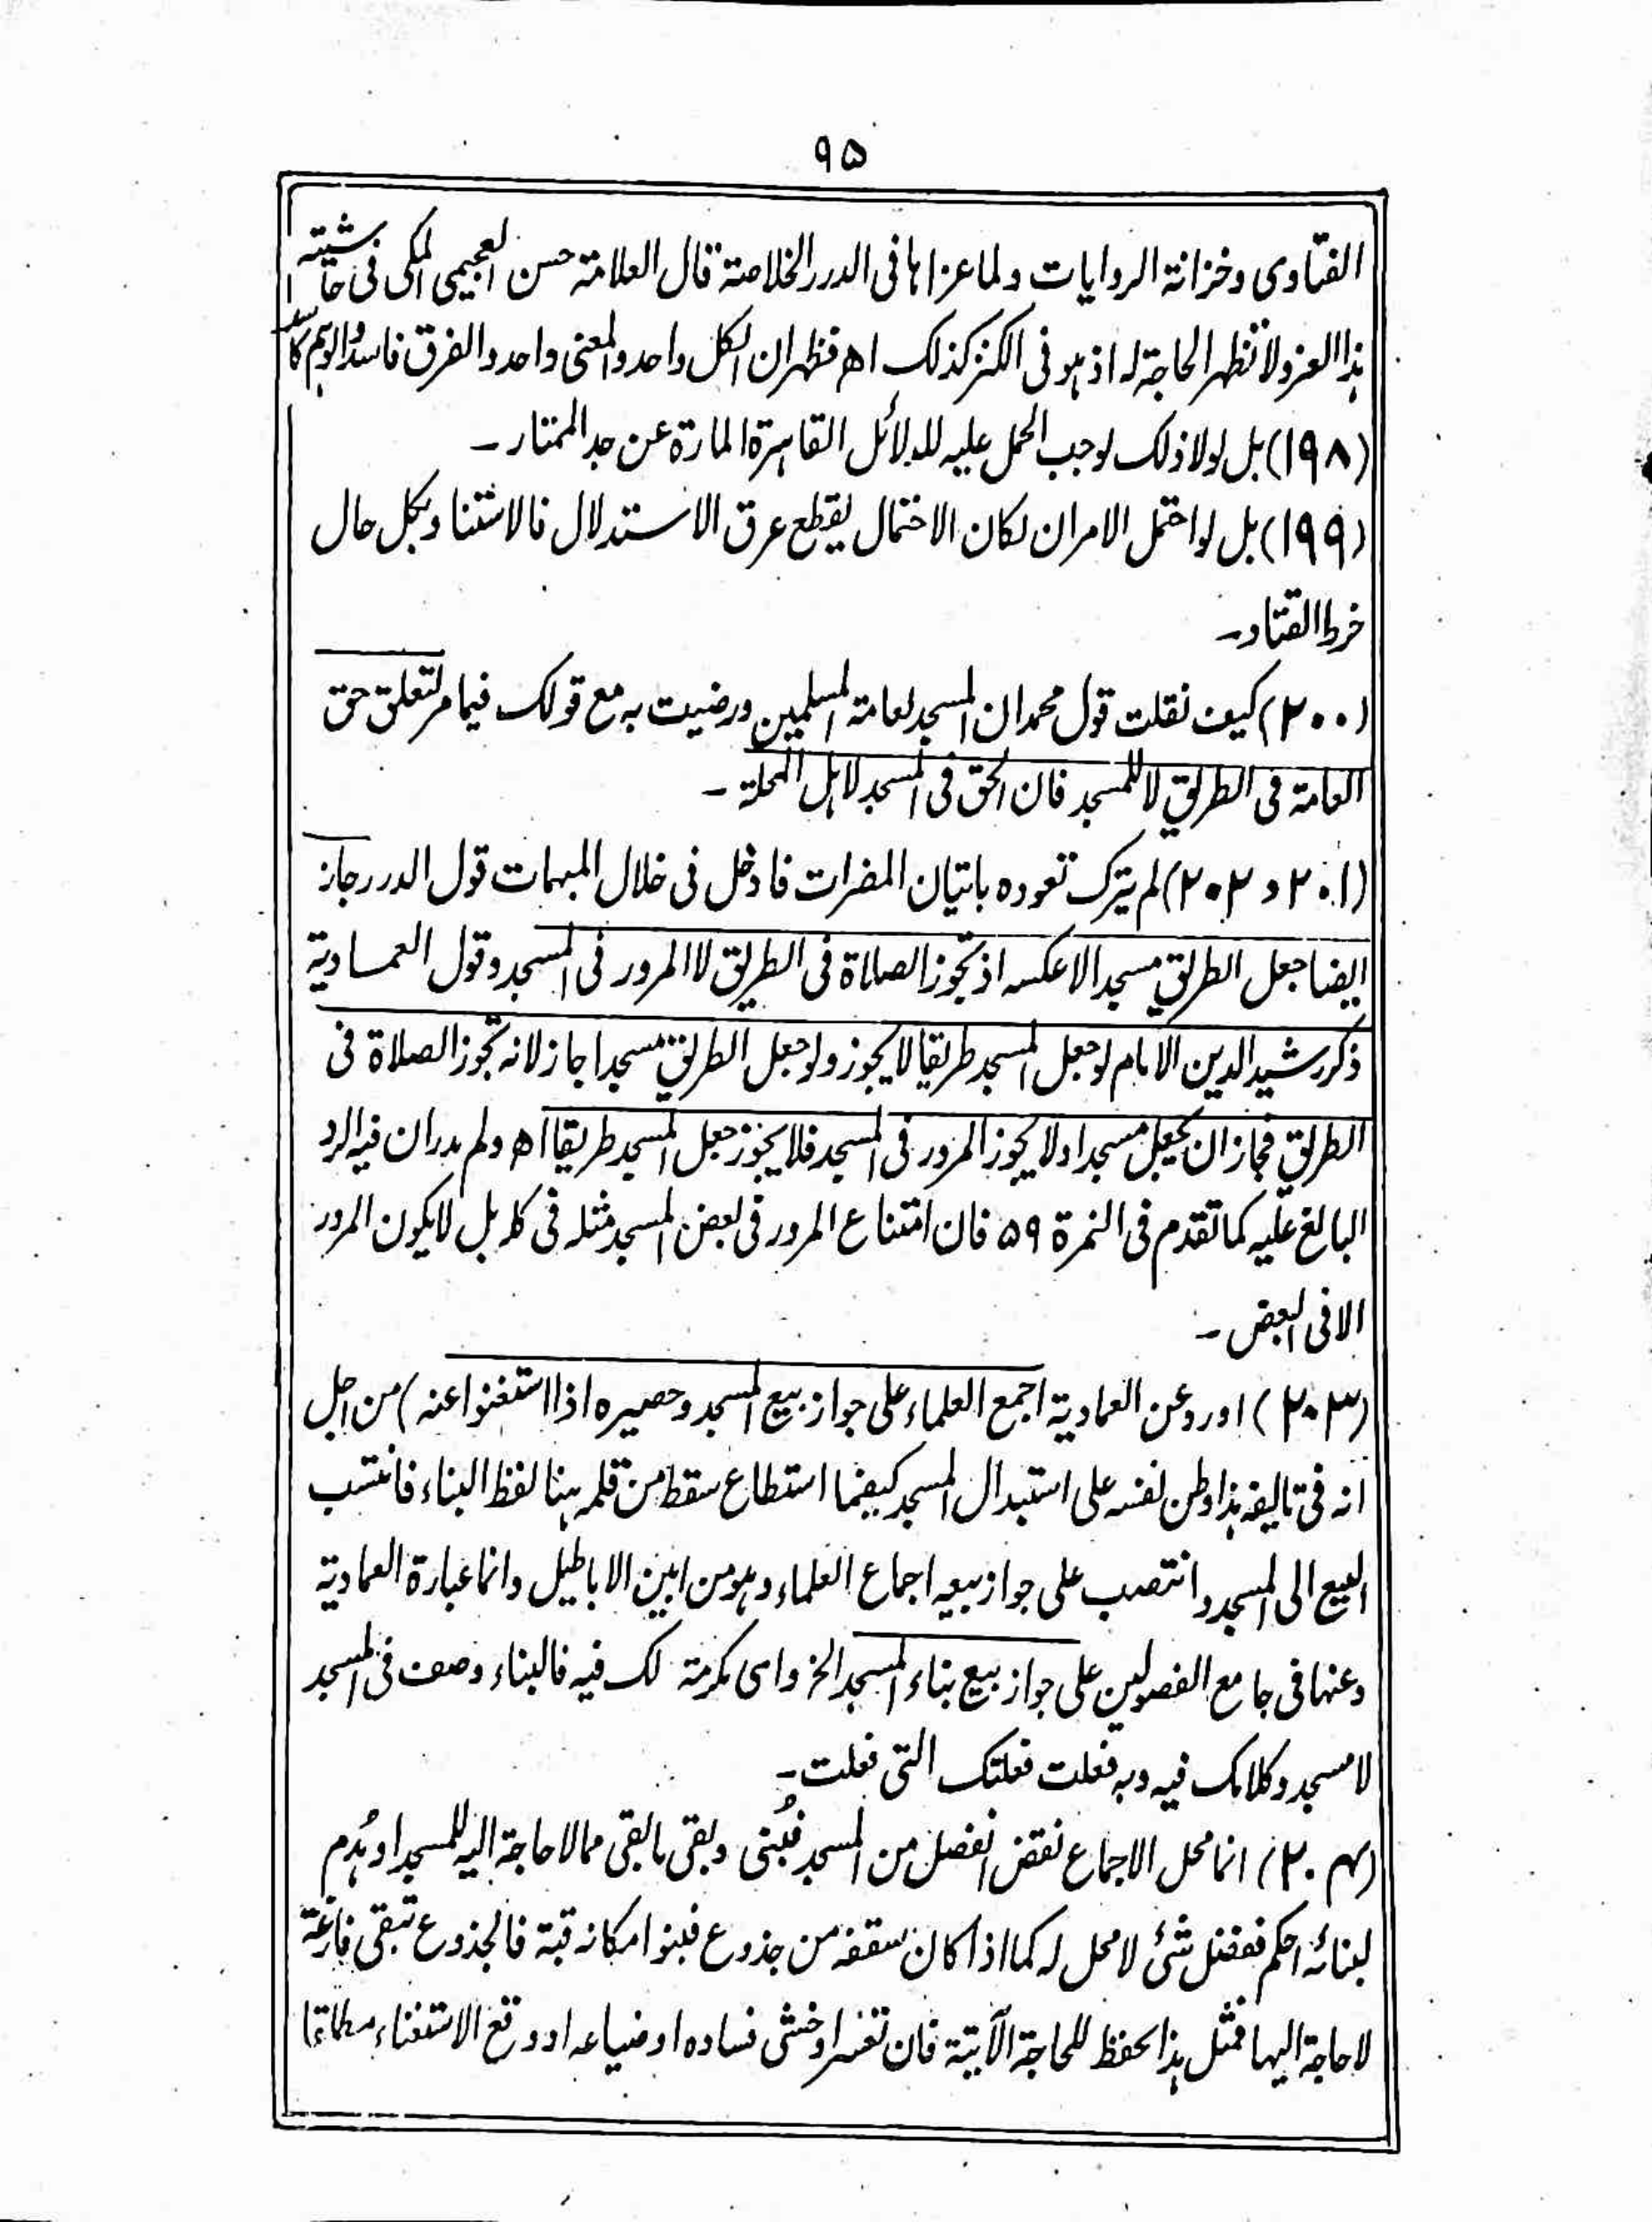 ۹۵
الفتاوى وخزانة الروايات ولما عزاها فى الدرر الخلاصة قال العلامة حسن العجيمى المكى فى حاشيته
هذا العزو لا تظهر الحاجة له اذ هو فى الكنز كذلك اھ فظهر ان الكل واحد والمعنى واحد والفرق فاسد والوهم كاسد
(۱۹۸) بل لولا ذلك لوجب الحمل عليه للدلائل القاهرة المارة عن جد الممتار۔
(۱۹۹) بل لو احتمل الامران لكان الاحتمال يقطع عرق الاستدلال فالاستناد بكل حال
خرط القتاد۔
(۲۰۰) كيف نقلت قول محمد ان المسجد لعامة المسلمين ورضيت به مع قولك فيما مر لتعلق حق
العامة فى الطريق لا للمسجد فان الحق فى المسجد لاهل المحلة۔
(۲۰۱ و ۲۰۲) لم يترك تعوده باتيان المضرات فادخل فى خلال المبهمات قول الدرر جاز
ايضا جعل الطريق مسجدا لا عكسه اذ تجوز الصلاة فى الطريق لا المرور فى المسجد وقول العمادية
ذكر رشيد الدين الامام لو جعل المسجد طريقا لا يجوز ولو جعل الطريق مسجدا جاز لانه تجوز الصلاة فى
الطريق فجاز ان يجعل مسجدا ولا يجوز المرور فى المسجد فلا يجوز جعل المسجد طريقا اھ ولم يدر ان فيه الرد
البالغ عليه كما تقدم فى النمرة ۵۹ فان امتناع المرور فى بعض المسجد مثله فى كله بل لا يكون المرور
الا فى البعض۔
(۲۰۳) اورد عن العمادية اجمع العلماء على جواز بيع المسجد وحصيره اذا استغنوا عنه) من اجل
انه فى تاليفه هذا وطن نفسه على استبدال المسجد كيفما استطاع سقط من قلمه هنا لفظ البناء فانتسب
البيع الى المسجد وانتصب على جواز بيعه اجماع العلماء وهو من ابين الاباطيل وانما عبارة العمادية
وعنها فى جامع الفصولين على جواز بيع بناء المسجد الخ واى مكرمة لك فيه فالبناء وصف فى المسجد
لا مسجد وكلامك فيه وبه فعلت فعلتك التى فعلت۔
(۲۰۴) انما محل الاجماع نقض انفصل من المسجد فبُنى وبقى ما بقى مما لا حاجة اليه للمسجد او هُدم
لبنائه احكم ففضل شئ لا محل له كما اذا كان سقفه من جذوع فبنوا مكانه قبة فالجذوع تبقى فارغة
لا حاجة اليها فمثل هذا يحفظ للحاجة الآتية فان تعسر او خشى فساده او ضياعه او وقع الاستغناء مطلقا